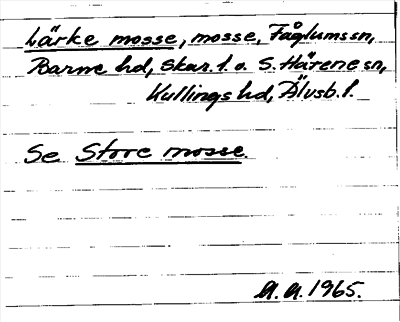 Lärke mosse, mosse, Fåglumssn,
Barne hd, Skar. l. o. S. Härene sn,
Kullings hd, Älvsb. l.
Se Store mosse.
A. A. 1965.